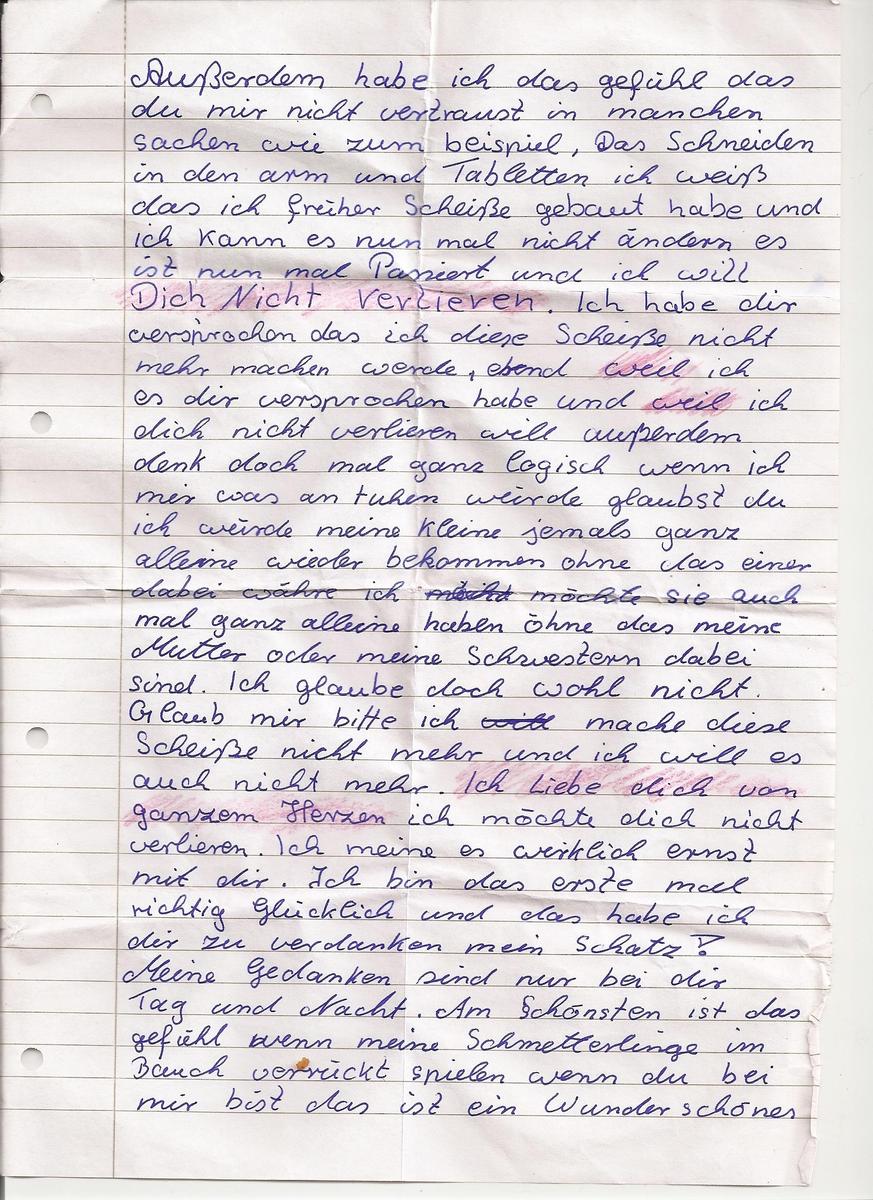 Außerdem habe ich das gefühl das
du mir nicht vertraust in manchen
sachen wie zum beispiel, Das Schneiden
in den arm und Tabletten ich weiß
das ich früher Scheiße gebaut habe und
ich kann es nun mal nicht ändern es
ist nun mal Passiert und ich will
Dich Nicht Verlieren. Ich habe dir
versprochen das ich diese Scheiße nicht
mehr machen werde, ebend weil ich
es dir versprochen habe und weil ich
dich nicht verlieren will außerdem
denk doch mal ganz logisch wenn ich
mir was an tuhen würde glaubst du
ich würde meine kleine jemals ganz
alleine wieder bekommen ohne das einer
dabei währe ich möchte sie auch
mal ganz alleine haben öhne das meine
Mutter oder meine Schwestern dabei
sind. Ich glaube doch wohl nicht.
Glaub mir bitte ich will mache diese
Scheiße nicht mehr und ich will es
auch nicht mehr. Ich Liebe dich von
ganzem Herzen ich möchte dich nicht
verlieren. Ich meine es wirklich ernst
mit dir. Ich bin das erste mal
richtig Glücklich und das habe ich
dir zu verdanken mein Schatz!
Meine Gedanken sind nur bei dir
Tag und Nacht. Am Schönsten ist das
gefühl wenn meine Schmetterlinge im
Bauch verrückt spielen wenn du bei
mir bist das ist ein Wunder schönes